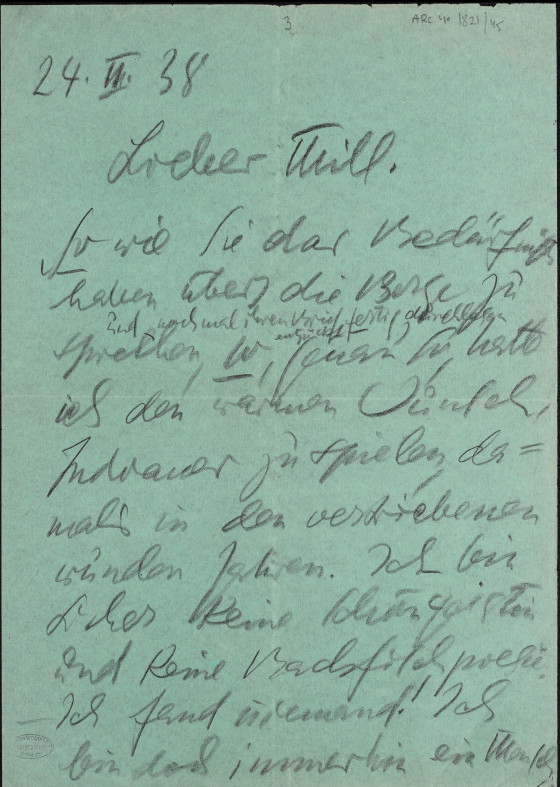 3
ARC. 4o 1821/45
24. III. 38
Lieber Thill.
So wie Sie das Bedürfniss
haben übers die Berge zu
und nochmal ihren Brief fertig
sprechen, so, genau so, hatte
ich den warmen Wunsch,
Indianer zu spielen, da=
mals in den vertriebenen
wunden Jahren. Ich bin
sicher keine Schöngeistin
und keine Backfischpoesie.
Ich fand niemand! Ich
bin doch immerhin ein Mensch